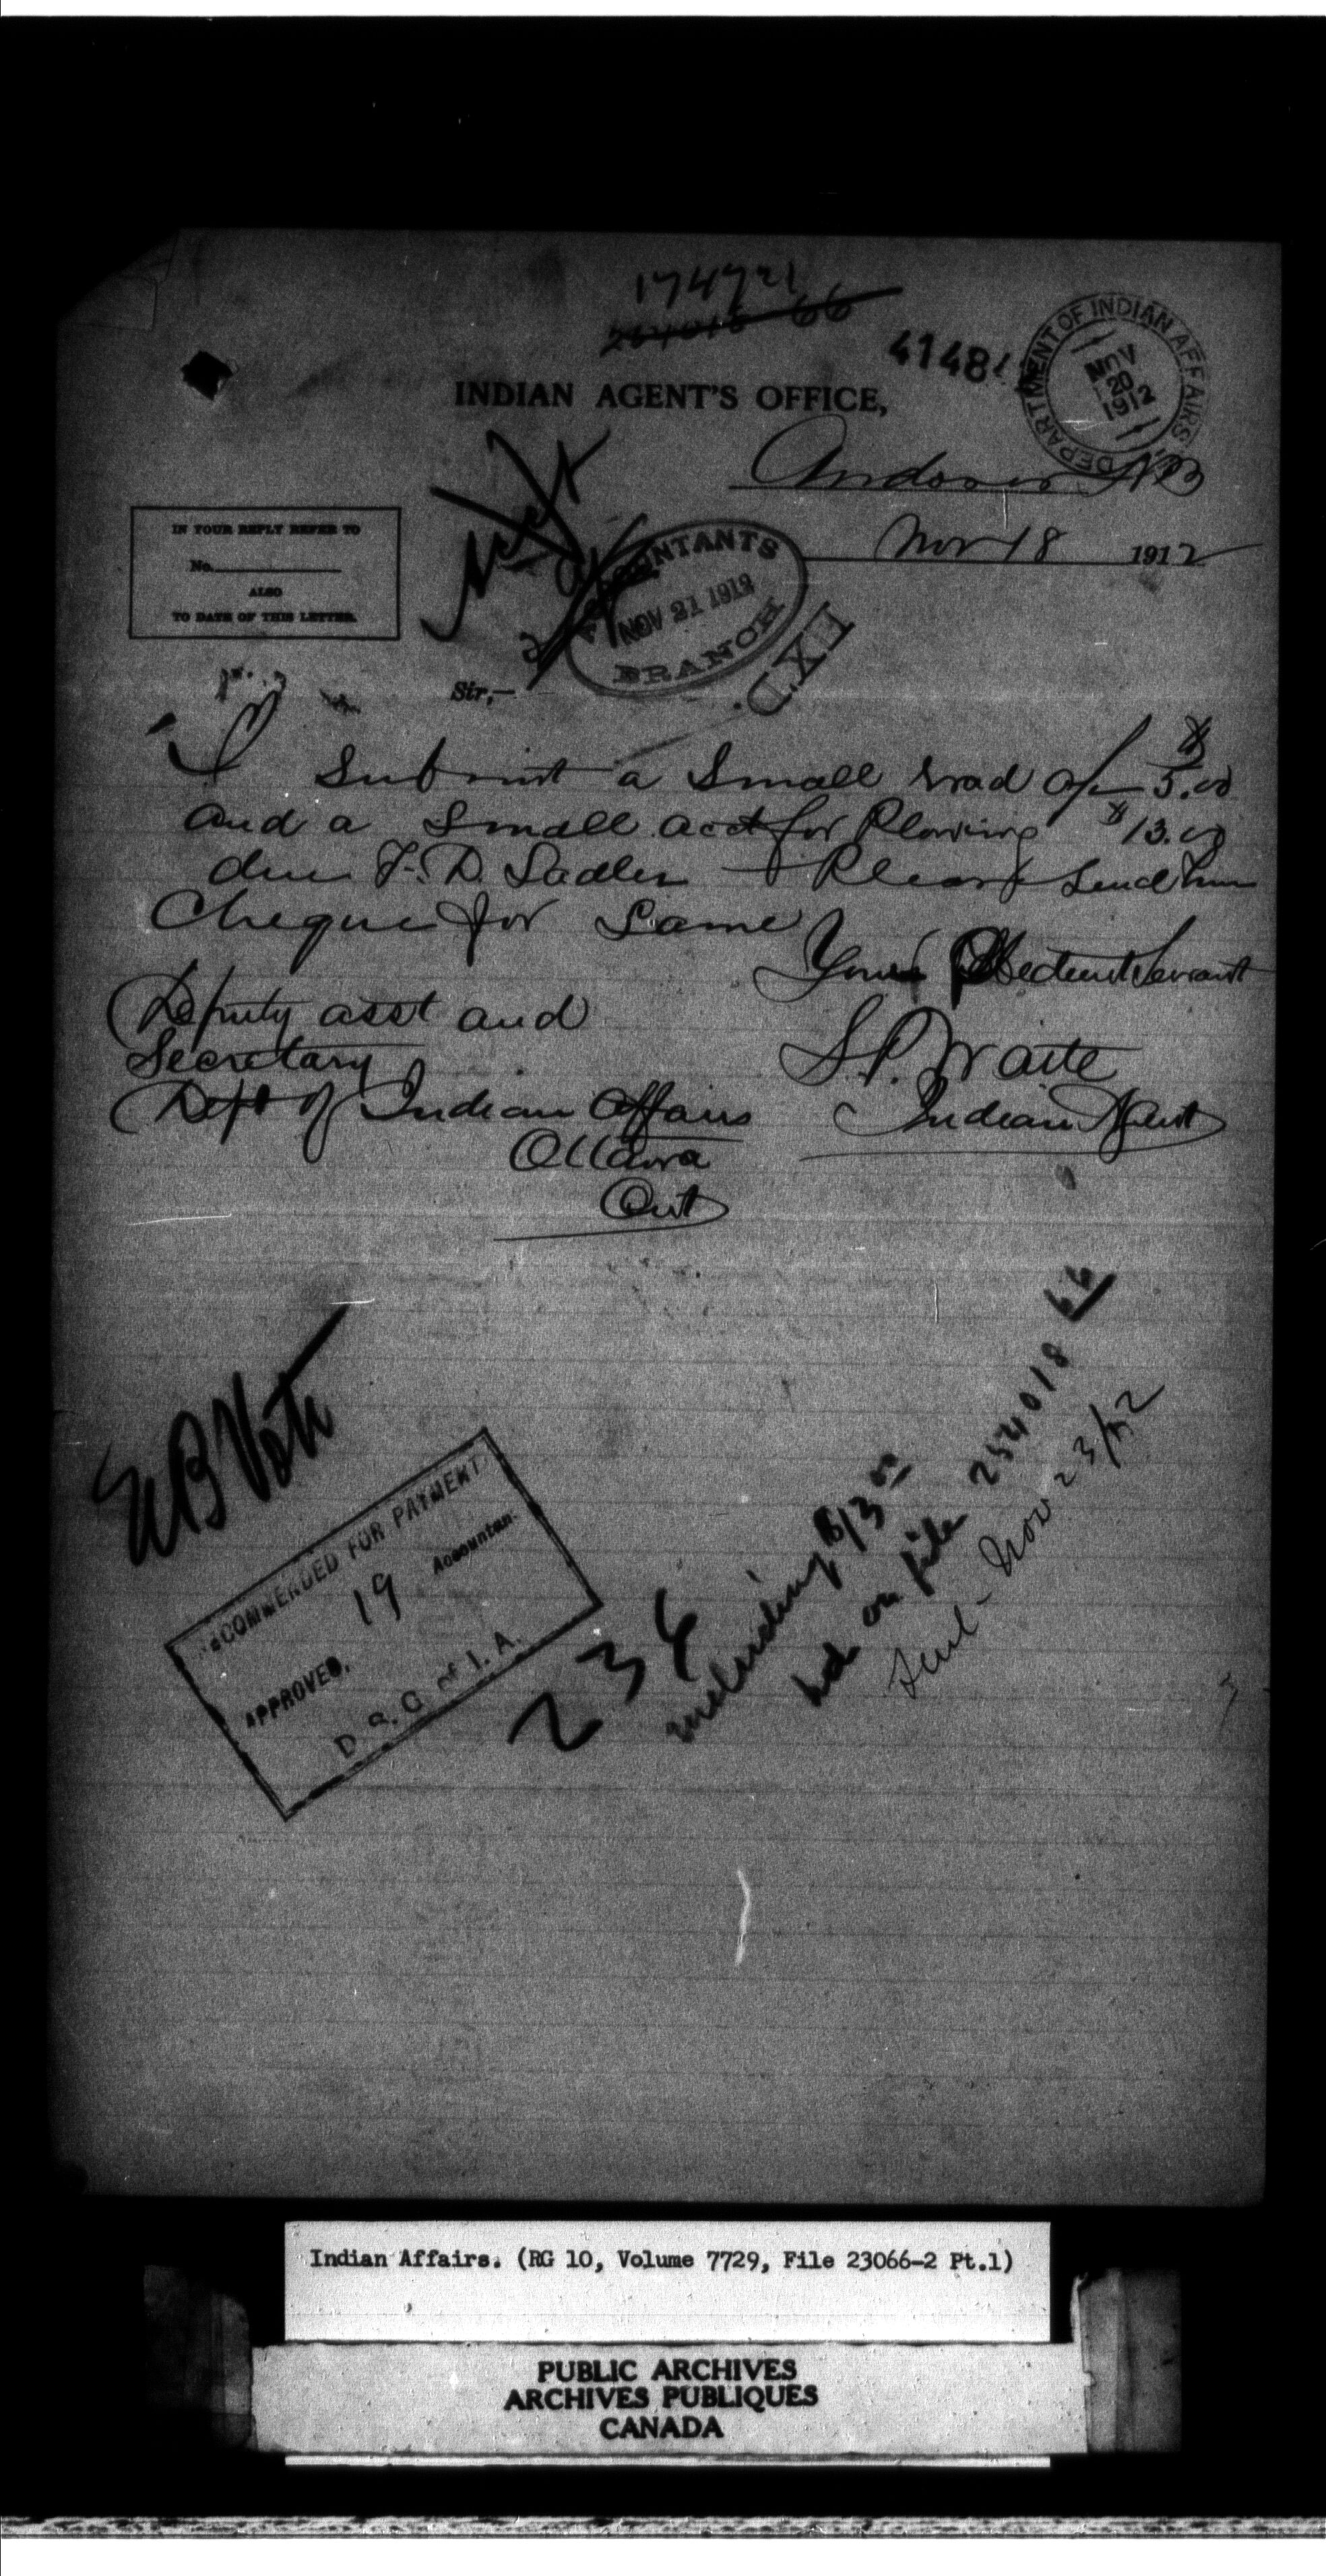 174721
254018 66
41484
DEPARTMENT OF INDIAN AFFAIRS
NOV
20
1912
INDIAN AGENT'S OFFICE,
Andover NB
Nov 18 1912
IN YOUR REPLY REFER TO
No.
ALSO
TO DATE OF THIS LETTER.
ACCOUNTANTS
NOV 21 1912
BRANCH
EX'D.
Sir,—
I submit a small road a/c $5.00
and a small acct for Plowing $13.00
due F. D. Sadler Please send him
Cheque for Same
Your Obedient Servant
Deputy asst and
S.P. Waite
Secretary
Indian Agent
Dept of Indian Affairs
Ottawa
Ont
NB Vote
RECOMMENDED FOR PAYMENT
19
Accountant
APPROVED.
D. S. G. of I. A.
234
including $13.00
on file 254018 66
Nov 23/12
Indian Affairs. (RG 10, Volume 7729, File 23066-2 Pt.1)
PUBLIC ARCHIVES
ARCHIVES PUBLIQUES
CANADA